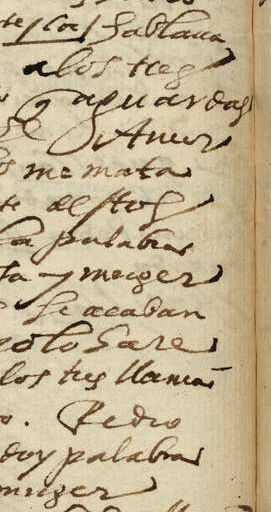 hablaua
a los tres
q aguardas
Amor
me mata
destos
la palabra
y muger
se acaban
yo lo hare
los tres llama
Pedro
doy palabra
muger